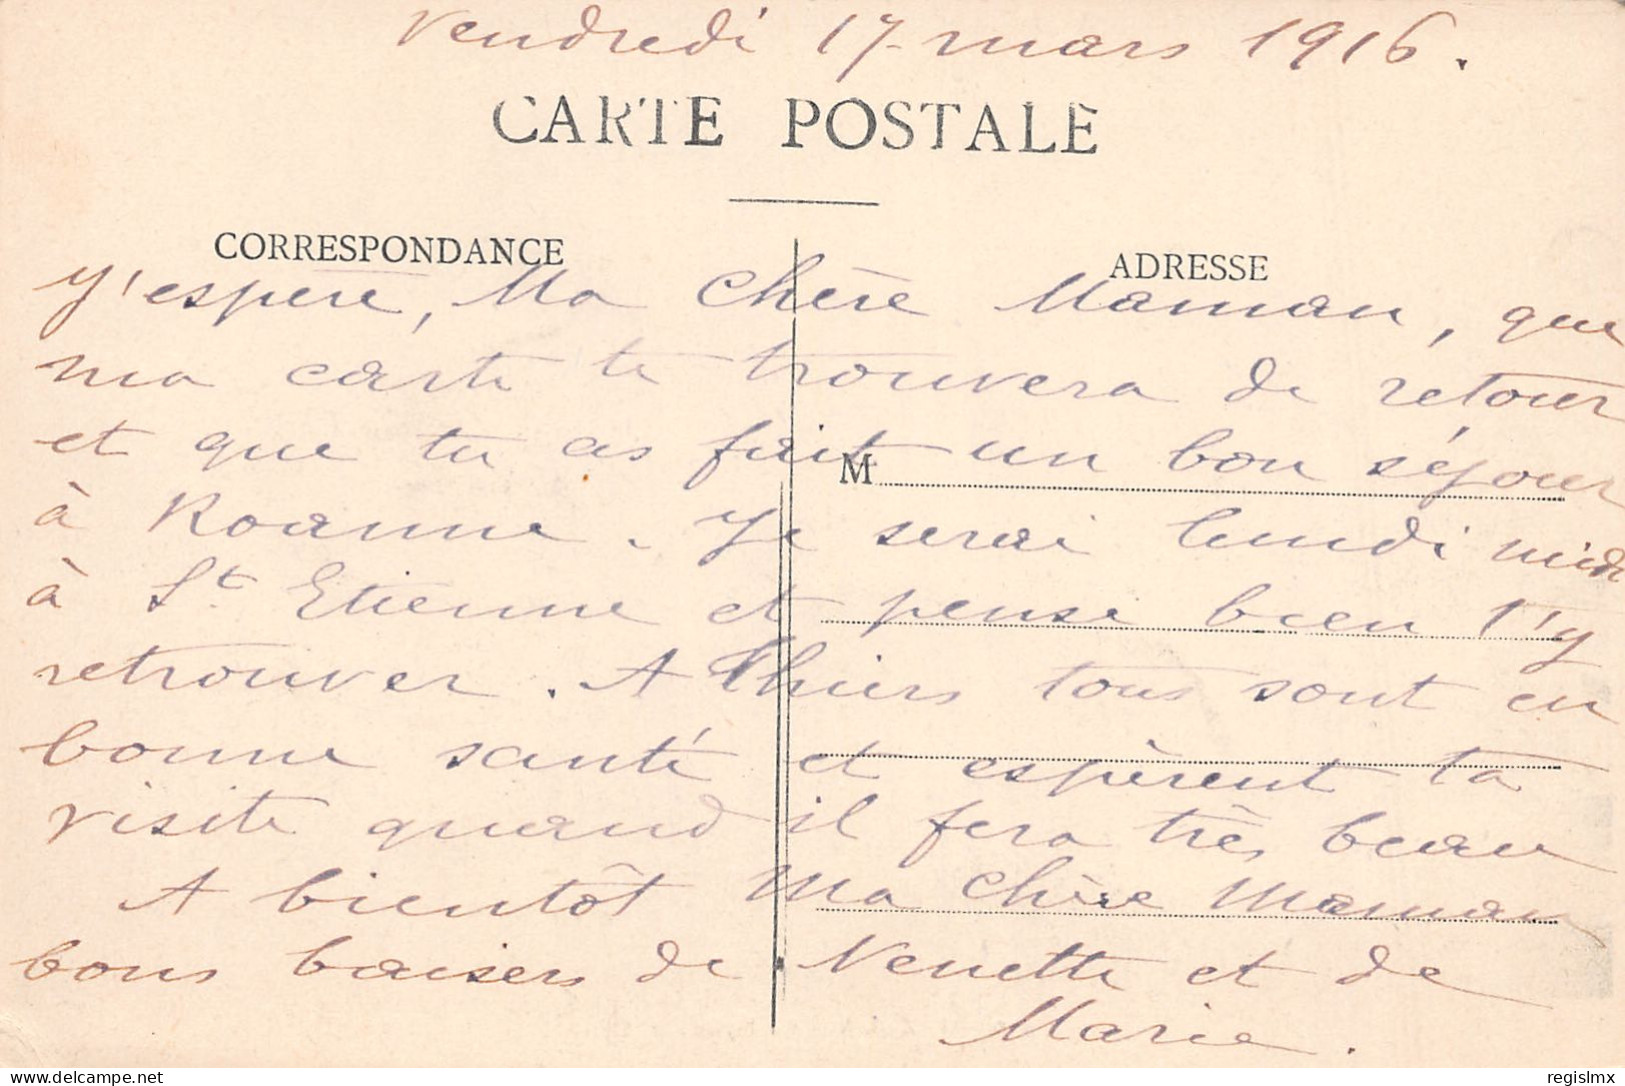 Vendredi 17 mars 1916.
CARTE POSTALE
CORRESPONDANCE
ADRESSE
J'espère, Ma Chère Maman, que
ma carte te trouvera de retour
et que tu as fait un bon séjour
M
à Roanne. Je serai lundi midi
à St Etienne et pense bien t'y
retrouver. A Thiers tous sont en
bonne santé et espèrent ta
visite quand il fera très beau
A bientôt Ma Chère Maman
bons baisers de Nenette et de
Marie.
delcampe.net
regislmx